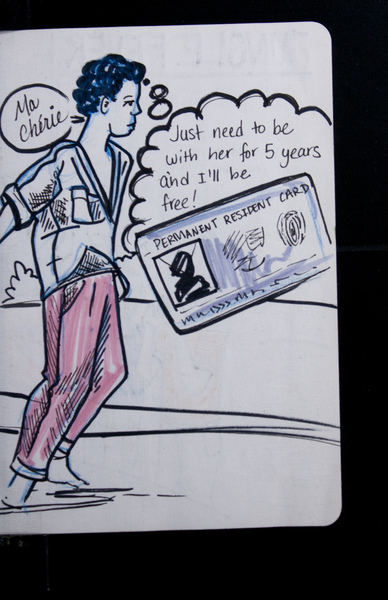 Ma
chérie
Just need to be
with her for 5 years
and I'll be
free!
PERMANENT RESIDENT CARD